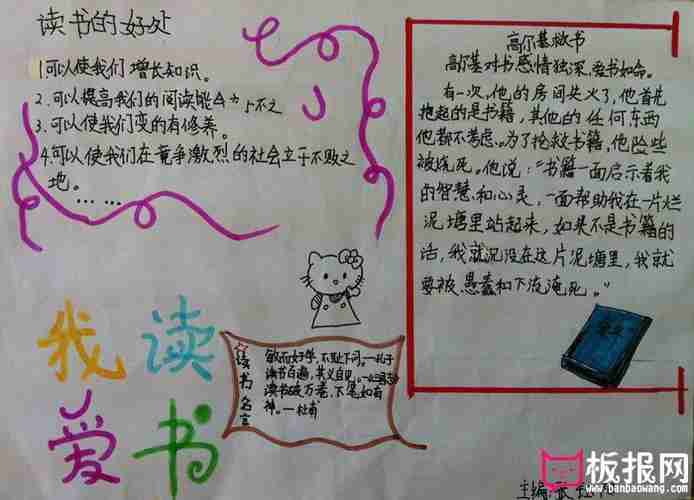 读书的好处
1可以使我们增长知识。
2.可以提高我们的阅读能
3.可以使我们变的有修养。
4.可以使我们在竟争激烈的社会立于不败之
地。
……
高尔基救书
高尔基对书感情独深,爱书如命。
有一次,他的房间失火了,他首先
抱起的是书籍,其他的任何东西
他都不考虑。为了抢救书籍,他险些
被烧死。他说:“书籍一面启示着我
的智慧和心灵,一面帮助我在一片烂
泥塘里站起来,如果不是书籍的
话,我就沉没在这片泥塘里,我就
要被愚蠢和下流淹死。”
我读
爱书
读书名言
敏而好学,不耻下问。—孔子
读书百遍,其义自见。
读书破万卷,下笔如有
神。—杜甫
主编:
板报网
www.banbaowang.com